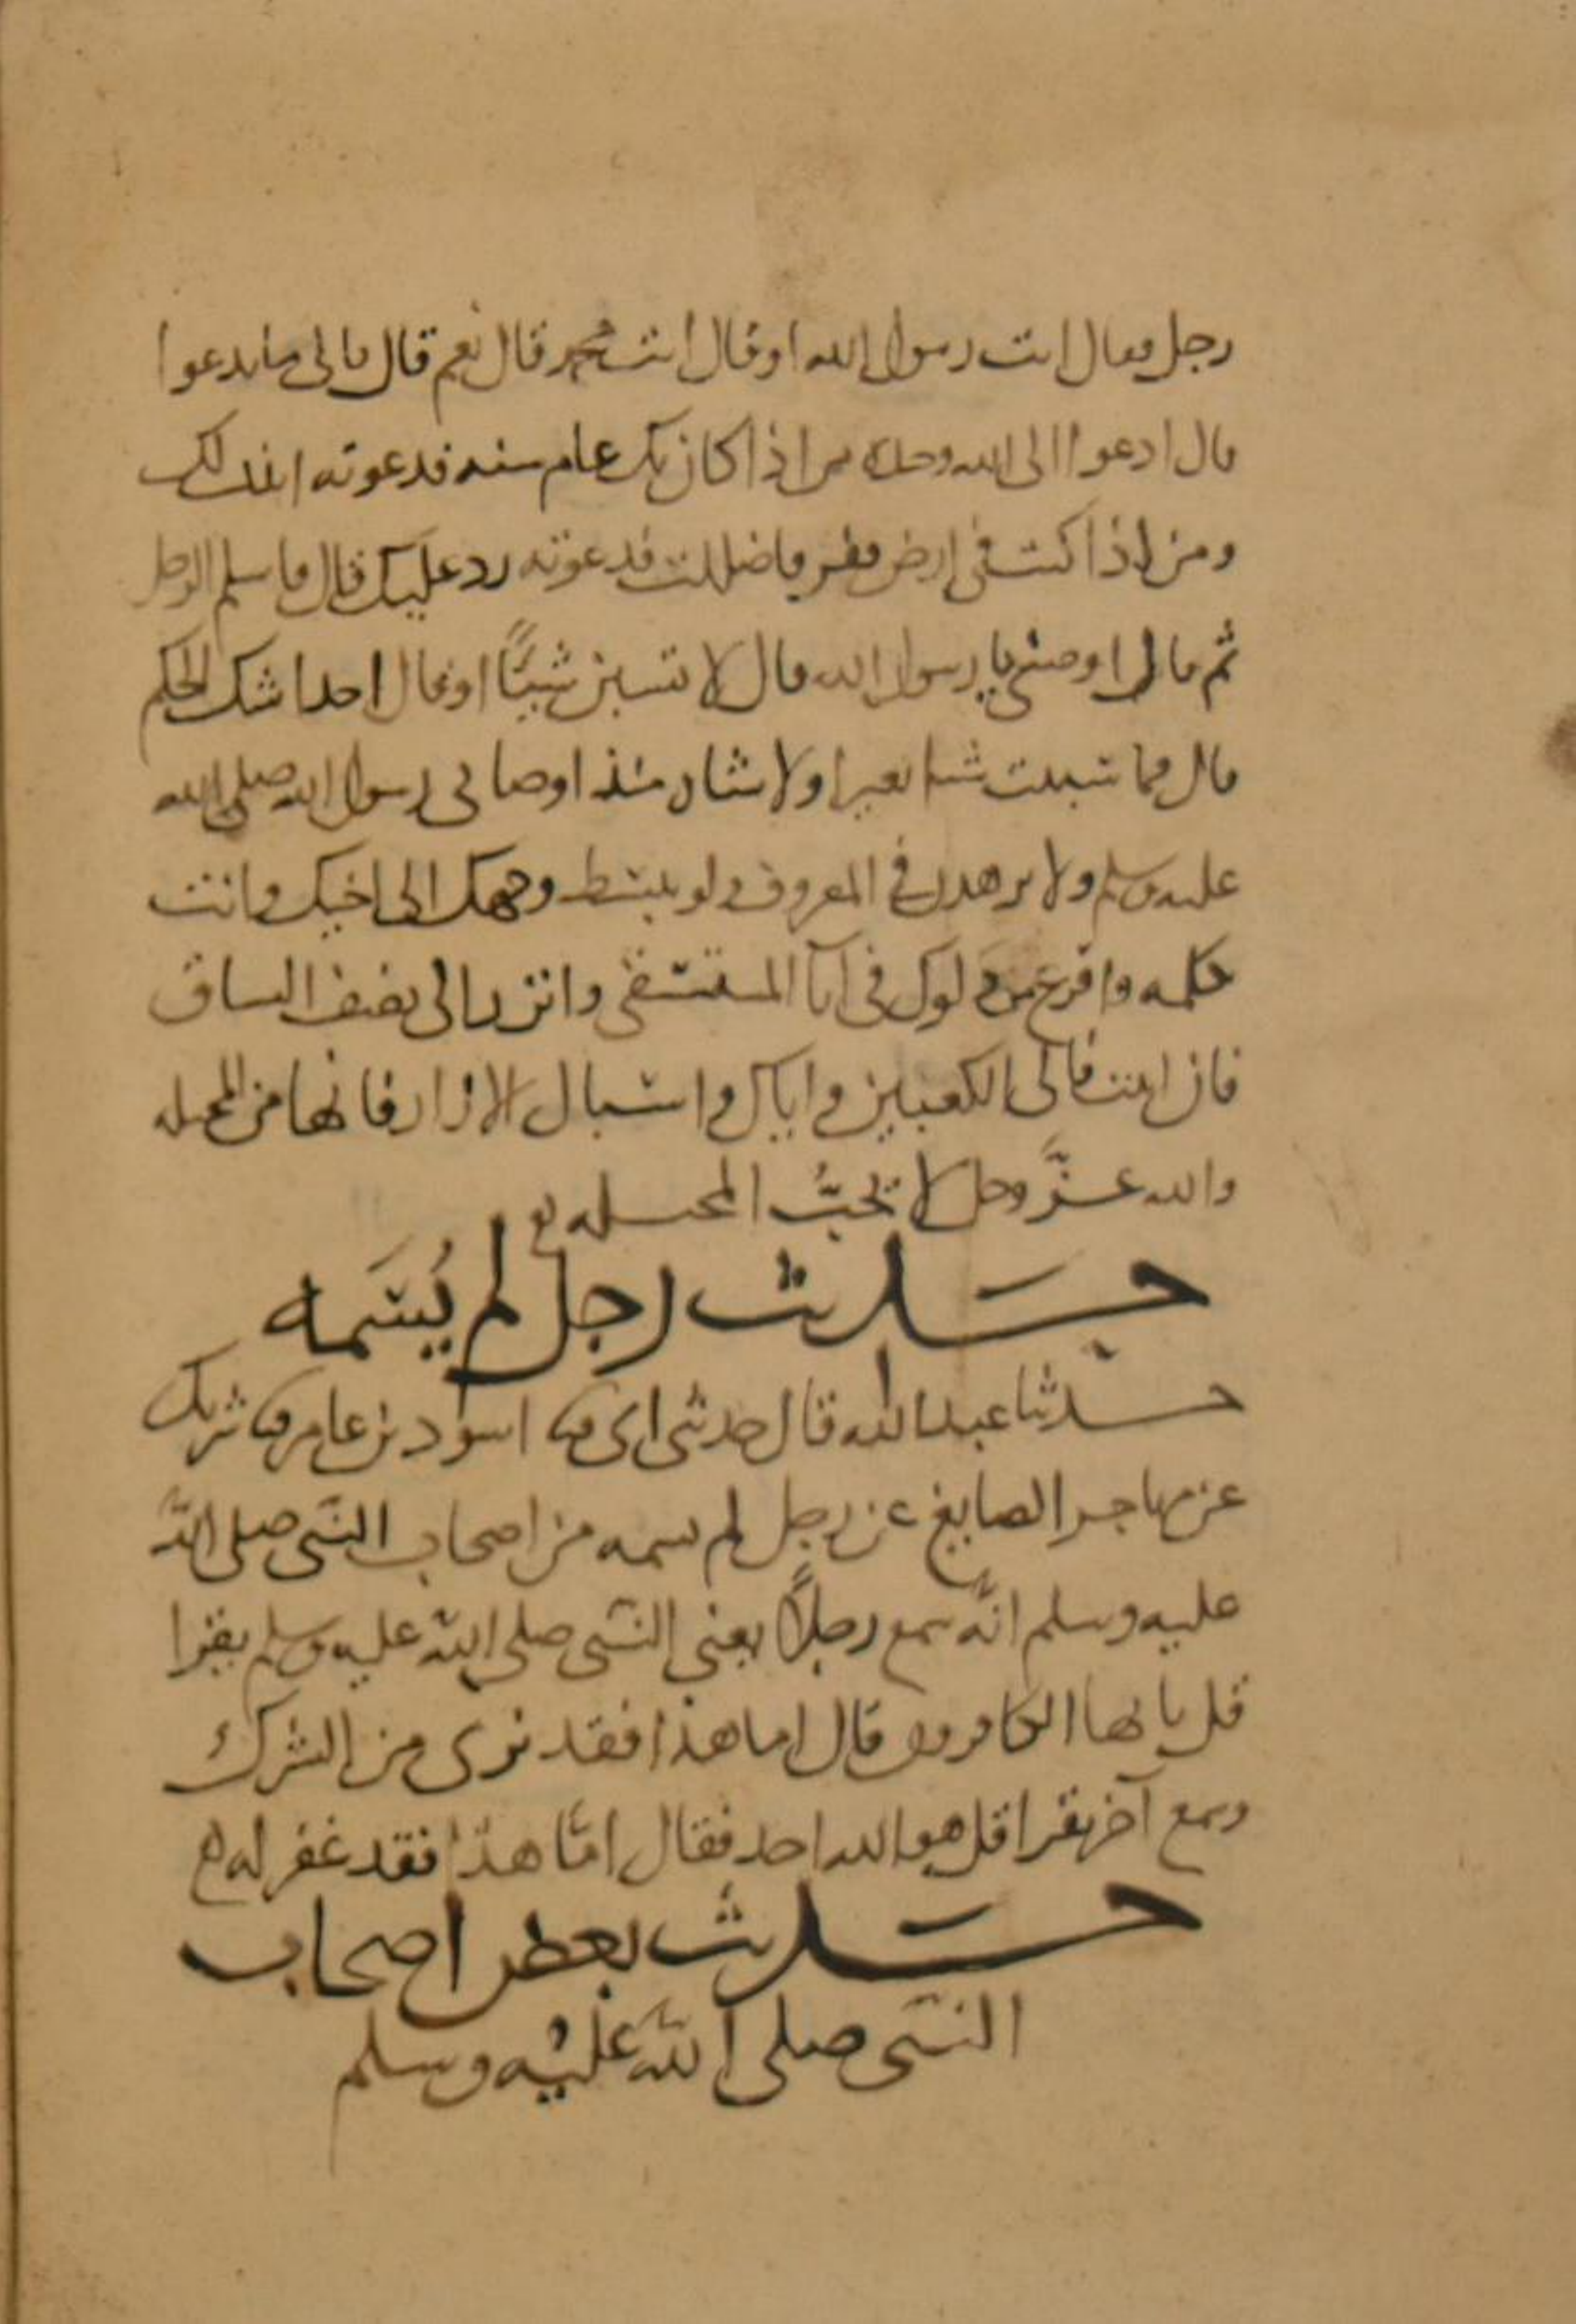 رجل فقال انت رسول الله او قال انت محمد قال نعم قال فالى ما تدعوا
قال ادعوا الى الله وحده من اذا كان بك عام سنه فدعوته انبت لك
ومن اذا كنت فى ارض قفر فاضللت فدعوته رد عليك قال فاسلم الرجل
ثم قال اوصنى يا رسول الله قال لا تسبن شيئًا او قال احدا شك الحكم
قال فما سببت شيا بعيرا ولا شاه منذ اوصانى رسول الله صلى الله
عليه وسلم ولا تزهدن في المعروف ولو ببسط وجهك الى اخيك وانت
تكلمه وافرغ من دلوك فى انآ المستسقى واتزر الى نصف الساق
فان ابيت فالى الكعبين واياك واسبال الازار فانها من المخيله
والله عزَّ وجل لا يحبُّ المخيله
حَديث رجل لم يُسَمه
حدثنا عبد الله قال حدثنى ابى ثنا اسود بن عامر ثنا شريك
عن مهاجر الصايغ عن رجل لم يسمه من اصحاب النبى صلى الله
عليه وسلم انَّه سمع رجلاً يعنى النبى صلى الله عليه وسلم يقرا
قل يا ايها الكافرون قال اما هذا فقد برى من الشرك
وسمع آخر يقرا قل هو الله احد فقال امّا هذا فقد غفر له
حَديث بعض اصحاب
النبى صلى الله عليه وسلم